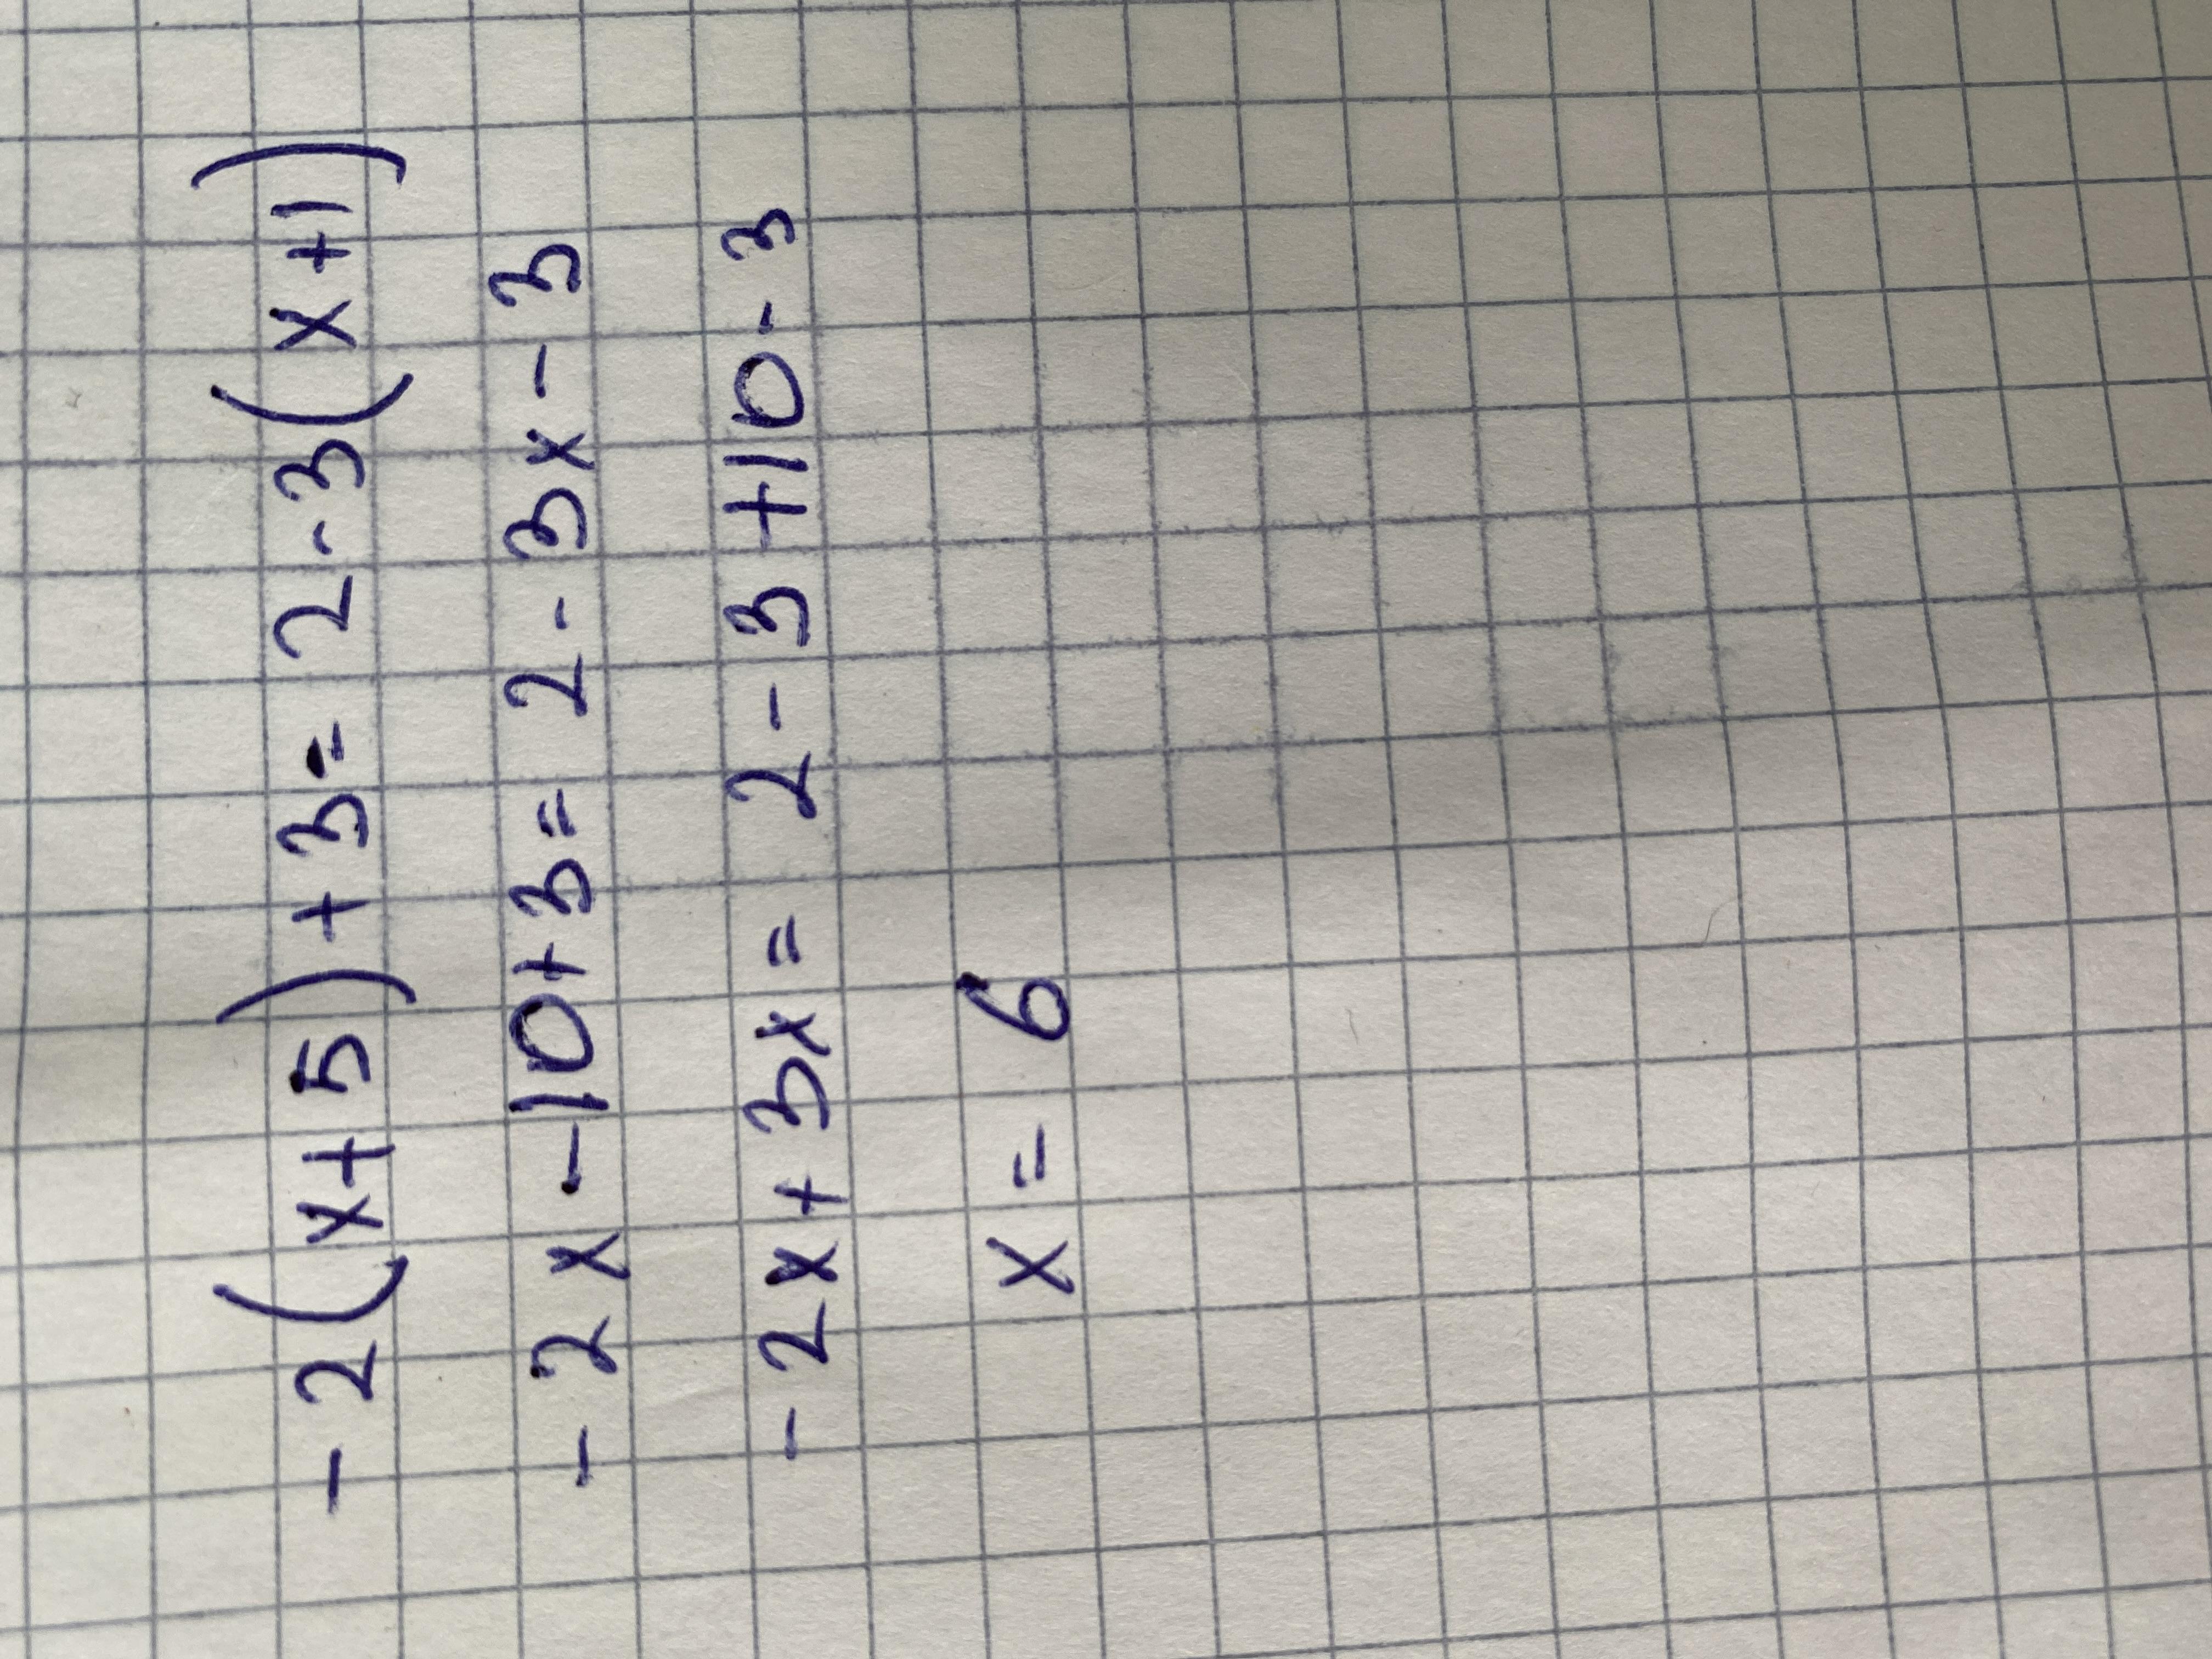 -2(x+5)+3=2-3(x+1)
-2x-10+3=2-3x-3
-2x+3x=2-3+10-3
x=6